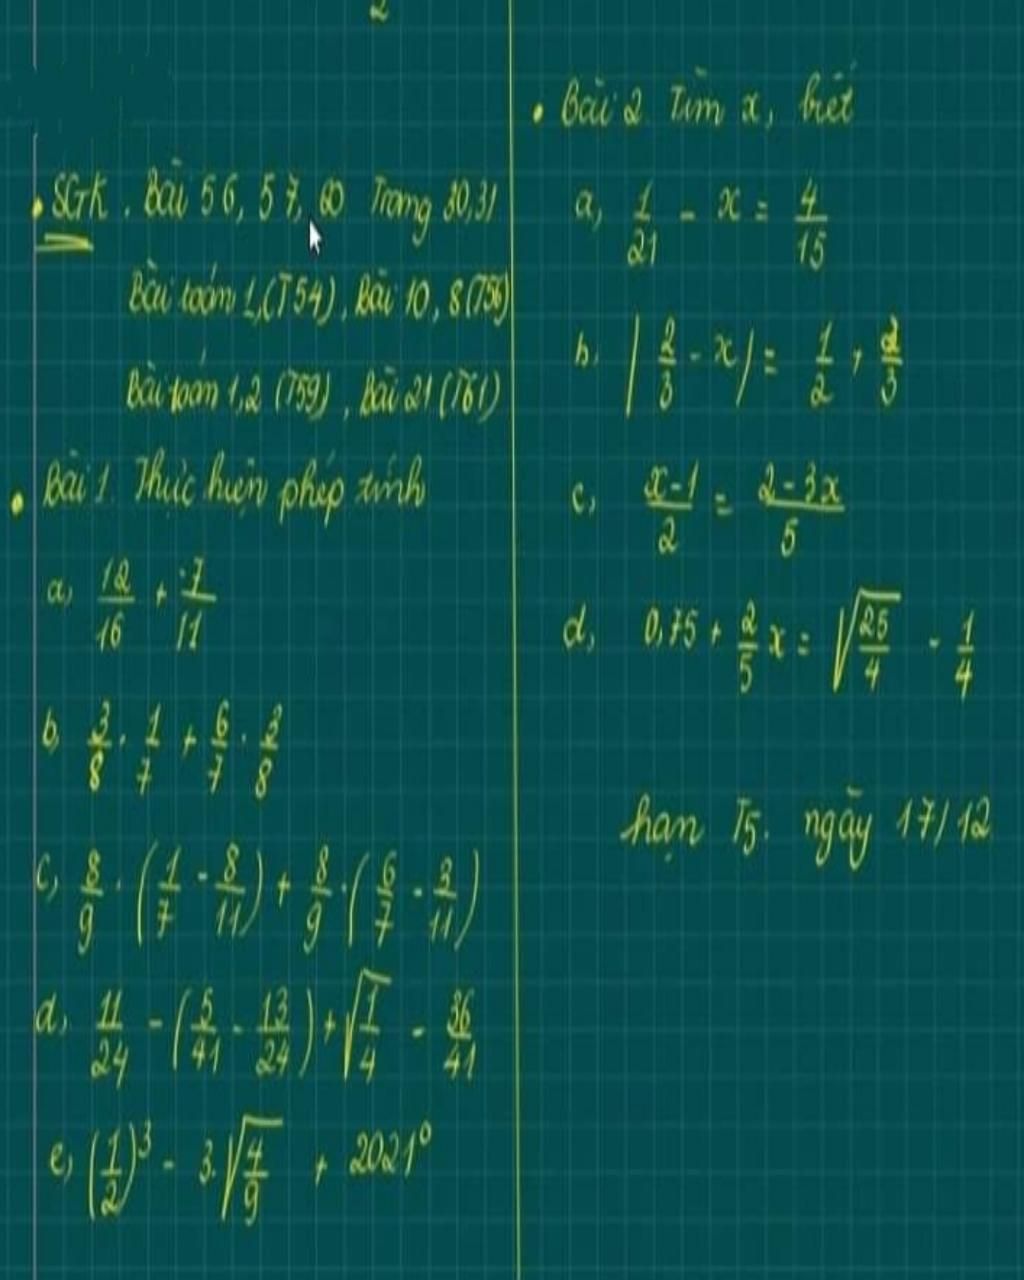 2
• SGK. Bài 56, 57, 60 Trang 30,31
Bài toán 1,(T54), Bài 10, 8(T56)
Bài toán 1,2 (T59), Bài 21 (T61)
• Bài 1. Thực hiện phép tính
a, 12/16 + -7/11
b, 3/8 . 1/7 + 6/7 . 3/8
c, 8/9 . (1/7 - 8/11) + 8/9 . (6/7 - 3/11)
d, 11/24 - (5/41 - 13/24) + √(1/4) - 36/41
e, (1/2)³ - 3.√(4/9) + 2021⁰
• Bài 2. Tìm x, biết
a, 1/21 - x = 4/15
b. |2/3 - x| = 1/2 + 2/3
c, (x-1)/2 = (2-3x)/5
d, 0,75 + 2/5 x = √(25/4) - 1/4
hạn T5. ngày 17/12